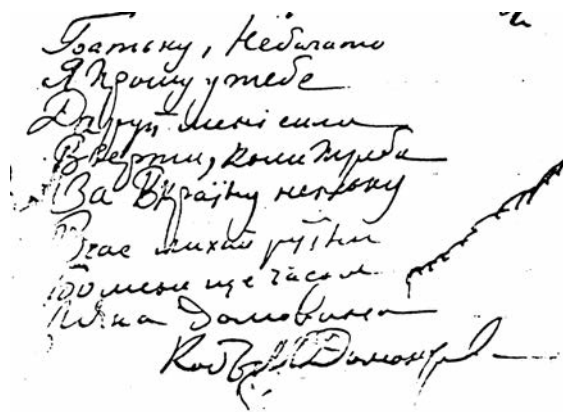 Батьку, Небагато
Я Прошу у тебе
Даруй мені сили
Вмерти, коли треба
За Вкраїну неньку
В час лихої руїни
Бо мені ще часом
домовина